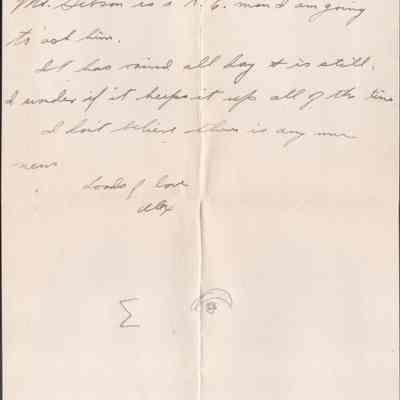 Mr. Gibson is a K. C. man I am going
to ask him.
It has rained all day & is still.
I wonder if it keeps it up all of the time
I don't believe there is any more
news
Loads of love
Alex
Σ